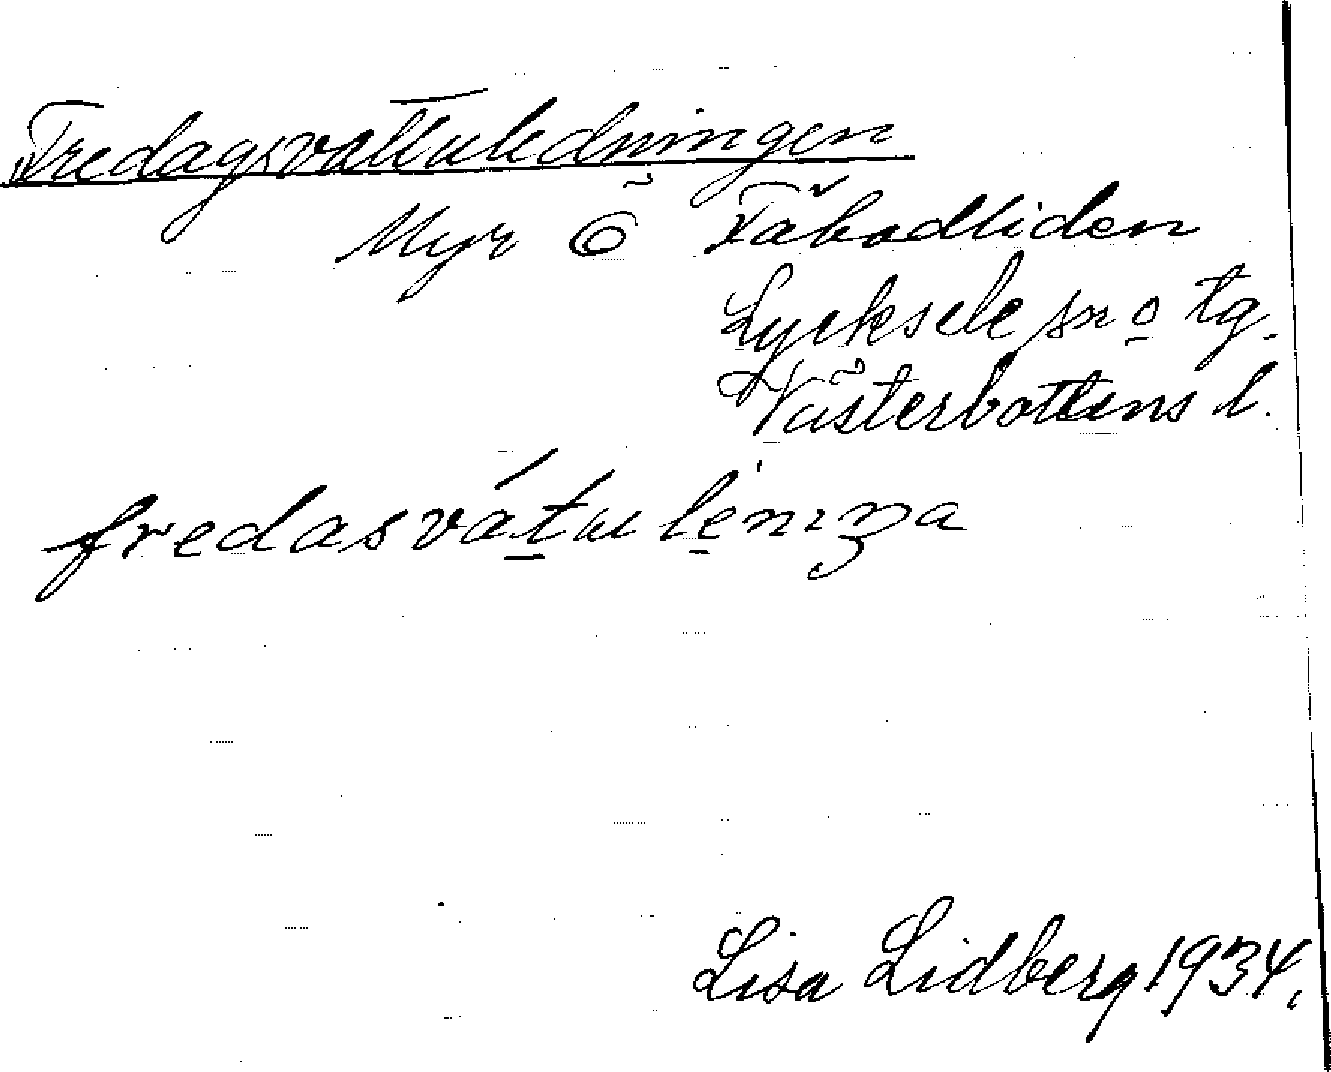 Fredagsvattuledningen
Myr Ö Fäbodliden
Lycksele sn o tg.
Västerbottens l.
Lisa Lidberg 1934.